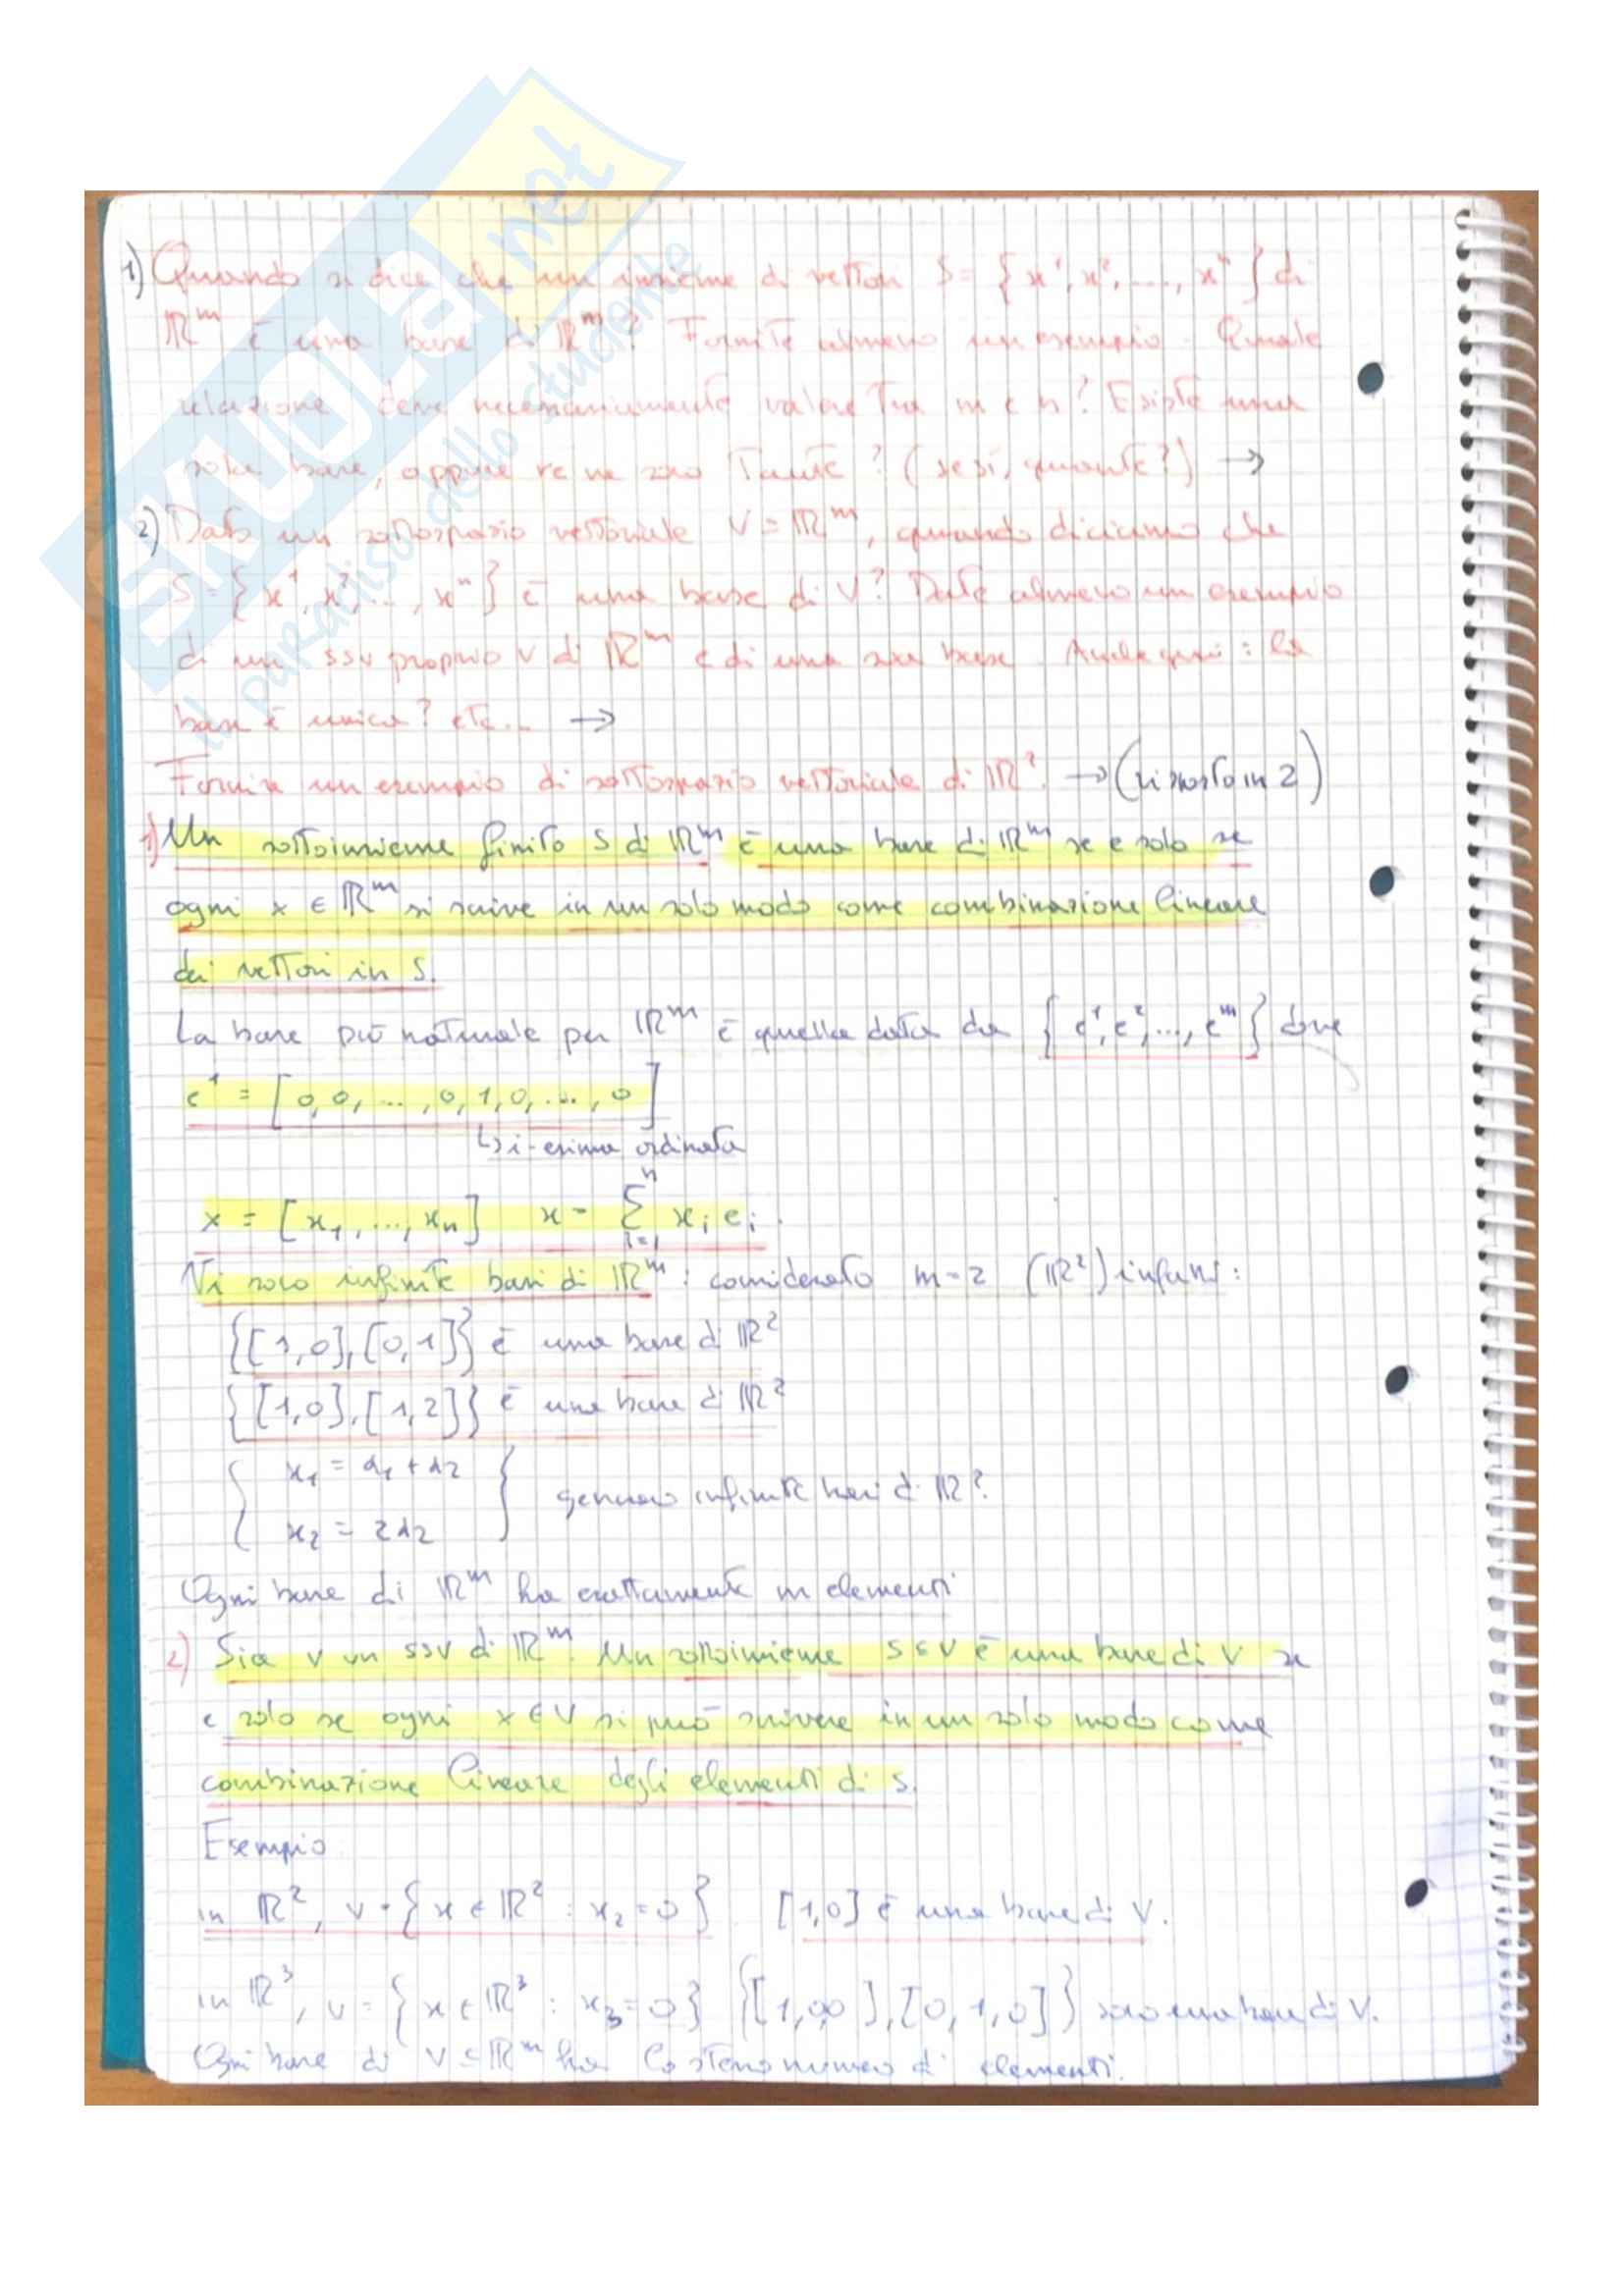 SKUOLA.net
il paradiso dello studente
1) Quando si dice che un insieme di vettori S = { x¹, x², ..., xⁿ } di
ℝᵐ è una base di ℝᵐ? Fornite almeno un esempio. Quale
relazione deve necessariamente valere tra m e n? Esiste una
sola base, oppure ve ne sono tante? (se sì, quante?) →
2) Dato un sottospazio vettoriale V = ℝᵐ, quando diciamo che
S = { x¹, x², ..., xⁿ } è una base di V? Date almeno un esempio
di un ssv proprio V di ℝᵐ e di una sua base. Anche qui: la
base è unica? etc... →
Fornire un esempio di sottospazio vettoriale di ℝ². → (risposto in 2)
1) Un sottoinsieme finito S di ℝᵐ è una base di ℝᵐ se e solo se
ogni x ∈ ℝᵐ si scrive in un solo modo come combinazione lineare
dei vettori in S.
La base più naturale per ℝᵐ è quella data da { e¹, e², ..., eᵐ } dove
e¹ = [0,0, ..., 0, 1, 0, ..., 0]
↳ i-esima ordinata
x = [x₁, ..., xₙ] x = ∑ⁿᵢ₌₁ xᵢ eᵢ.
Vi sono infinite basi di ℝᵐ: considerato m=2 (ℝ²) infatti:
{[1,0],[0,1]} è una base di ℝ²
{[1,0],[1,2]} è una base di ℝ²
{ x₁ = α₁ + α₂
x₂ = 2α₂ } generano infinite basi di ℝ².
Ogni base di ℝᵐ ha esattamente m elementi
2) Sia V un ssv di ℝᵐ. Un sottoinsieme S ⊆ V è una base di V se
e solo se ogni x ∈ V si può scrivere in un solo modo come
combinazione lineare degli elementi di S.
Esempio
in ℝ², V = { x ∈ ℝ² : x₂ = 0 } [1,0] è una base di V.
in ℝ³, V = { x ∈ ℝ³ : x₃ = 0 } {[1,0,0],[0,1,0]} sono una base di V.
Ogni base di V ⊆ ℝᵐ ha lo stesso numero di elementi.